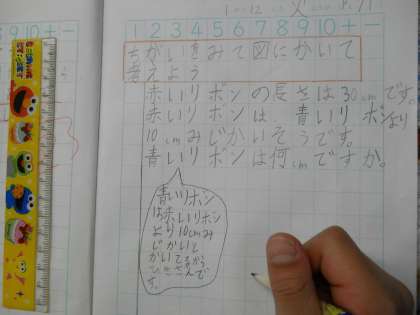 1 2 3 4 5 6 7 8 9 10 + -
ちがいをみて図にかいて
考えよう
赤いリボンの長さは30cmです。
赤いリボンは、青いリボンより
10cmみじかいそうです。
青いリボンは何cmですか。
青いリボン
は赤いリボン
より10cmみ
じかいと
かいてるから
ひき算で
す。